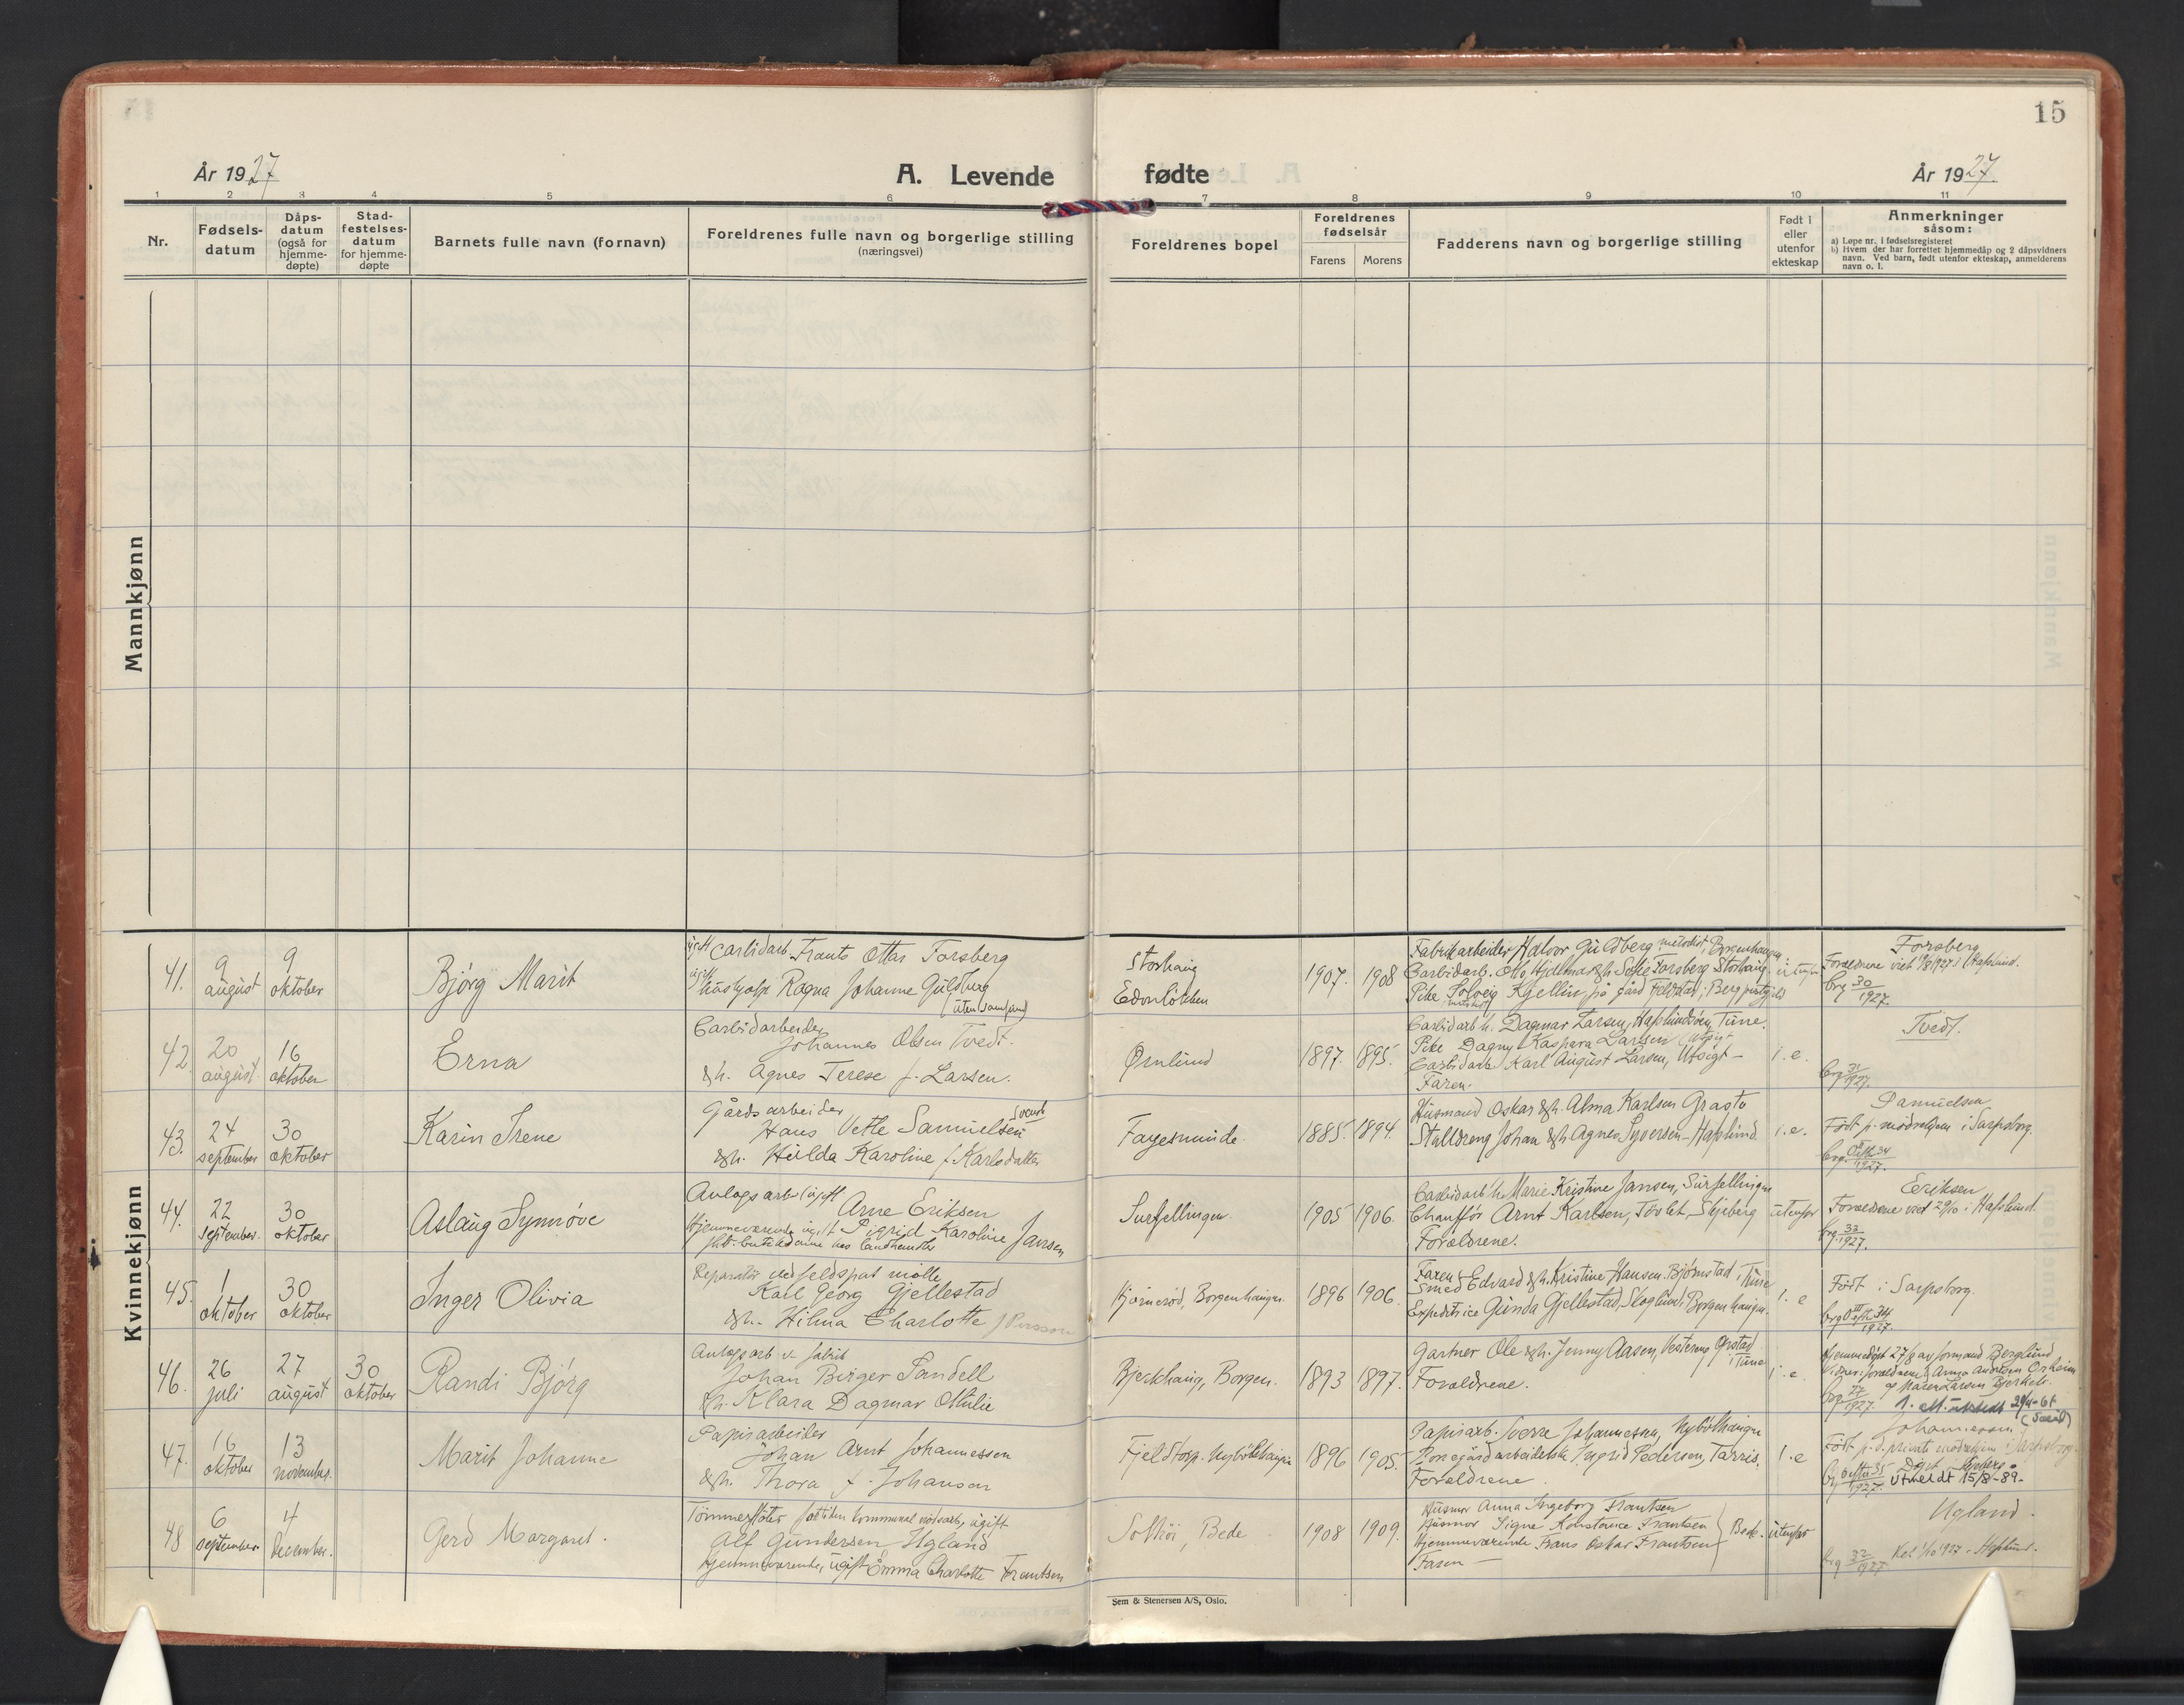 15
År 1927
A. Levende
fødte
År 1927.
1 2 3 4 5 6 7 8 9 10 11
Nr.
Fødsels-
datum
Dåps-
datum
(også for
hjemme-
døpte)
Stad-
festelses-
datum
for hjemme-
døpte
Barnets fulle navn (fornavn)
Foreldrenes fulle navn og borgerlige stilling
(næringsvei)
Foreldrenes bopel
Foreldrenes
fødselsår
Farens
Morens
Fadderens navn og borgerlige stilling
Født i
eller
utenfor
ekteskap
Anmerkninger
såsom:
a) Løpe nr. i fødselsregisteret
b) Hvem der har forrettet hjemmedåp og 2 dåpsvidners
navn. Ved barn, født utenfor ekteskap, anmelderens
navn o. l.
Mannkjønn
Kvinnekjønn
41.
9
august
9
oktober
Bjørg Marit
ugift Carbidarb. Frants Ottar Forsberg
ugift hushjelp Ragna Johanne Guldberg
(uten samfund)
Storhaug
1907.
1908
Fabrikarbeider Halvor Guldberg, metodist, Borgenhaugen
Carbidarb. Otto Hjalmar & h. Sofie Forsberg Storhaug.
Pike Solveig Kjellin på gård
utenfor
Forsberg
Foreldrene viet i Hafslund.
brg 30/1927.
42.
20
august
16
oktober
Erna
Carbidarbeider
Johannes Olsen Tvedt.
& h. Agnes Terese f. Larsen.
Ørnlund
1897.
1895.
Carbidarb. h. Dagmar Larsen, Hafslundsøen, Tune.
Pike Dagny Kaspara Larsen
Carbidarb. Karl August Larsen, Utsigt –
Faren.
i. e.
Tvedt.
brg 31/1927.
43.
24
september
30
oktober
Karin Irene
Gårdsarbeider
Hans Vetle Samuelsen
& h. Hulda Karoline f. Karlsdatter
Fagesmunde.
1885.
1894.
Husmand Oskar & h. Alma Karlsen
Stalldreng Johan & h. Agnes Syversen – Hafslund.
i. e.
Samuelsen
Født p. mødrehjem i Sarpsborg.
44.
22
september.
30
oktober
Aslaug Synnøve
Anlagsarb. ugift Arne Eriksen
Hjemmeværende ugift Sigrid Karoline Jansen
Surfellingen
1905
1906.
Carbidarb. h. Marie Kristine Jansen, Surfellingen
Chauffør Arnt Karlsen, Skjeberg
Foreldrene.
utenfor
Eriksen
Foreldrene viet 29/10 i Hafslund.
brg. 32/1927.
45.
1
oktober
30
oktober
Inger Olivia
Reparatør ved feldspat mølle
Karl Georg Gjellestad
& h. Hilma Charlotte f Persson
Bjørnerød, Borgenhaugen.
1896
1906.
Faren.
Smed Edvard & h. Kristine Hansen. Bjørnstad i Tune
Expeditrice Gunda Gjellestad, Skoglund, Borgenhaugen.
i. e
Født i Sarpsborg.
46.
26
juli
27
august
30
oktober
Randi Bjørg
Anlagsarb v. fabrik
Johan Birger Sandell
& h. Klara Dagmar Ottilie
Bjerkhaug, Borgen.
1893
1897.
Gartner Ole & h. Jenny Aasen,
i Tune
Foreldrene.
i. e.
Hjemmedøpt 27/8 av formand Berglund
47.
16
oktober
13
november.
Marit Johanne
Papirarbeider
Johan Arnt Johannessen
& h. Thora f. Johansen
1896
1905.
Papirarb. Sverre Johannessen,
Ingrid Pedersen, Tarris.
Foreldrene.
i. e
Johannessen
Utmeldt 15/8-89.
48
6
september
4
December.
Gerd Margaret.
Tømmerfløter ugift
Alf Gundersen Ugland
Hjemmeværende, ugift Emma Charlotte Frantsen
Solhøi, Bede
1908
1909.
Husmor Anna Ingeborg Frantsen
Husmor Signe Konstance Frantsen
Hjemmeværende Frans Oskar Frantsen
Faren –
Bede.
utenfor
Ugland.
brg 32/1927.
Sem & Stenersen A/S, Oslo.